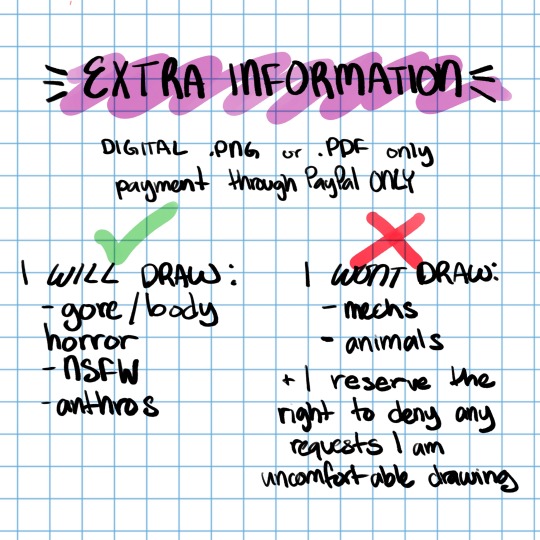 EXTRA INFORMATION
DIGITAL .PNG or .PDF only
payment through PayPal ONLY
I WILL DRAW:
- gore/body
horror
- NSFW
- anthros
I WONT DRAW:
- mechs
- animals
+ I reserve the
right to deny any
requests I am
uncomfortable drawing